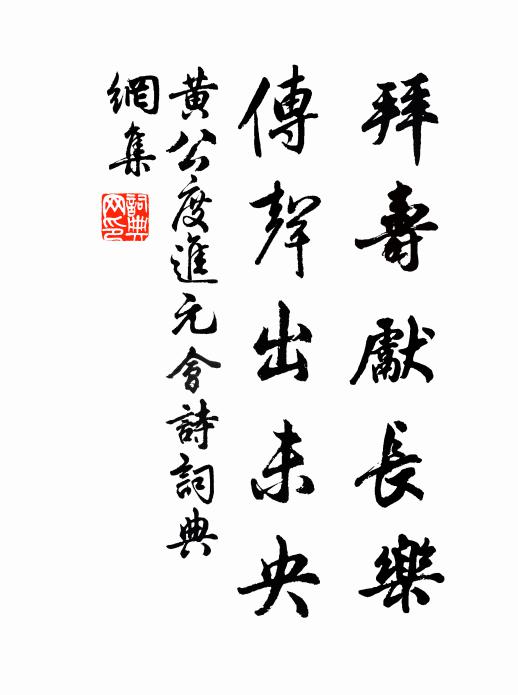 拜壽獻長樂
傳聲出未央
黃公度進元會詩詞典
網集
詞典
网印